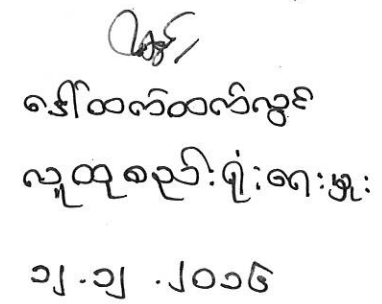 ဒေါ်ထက်ထက်လွင်
လူထုစည်းရုံးရေးမှူး
၁၂.၁၂.၂၀၁၆